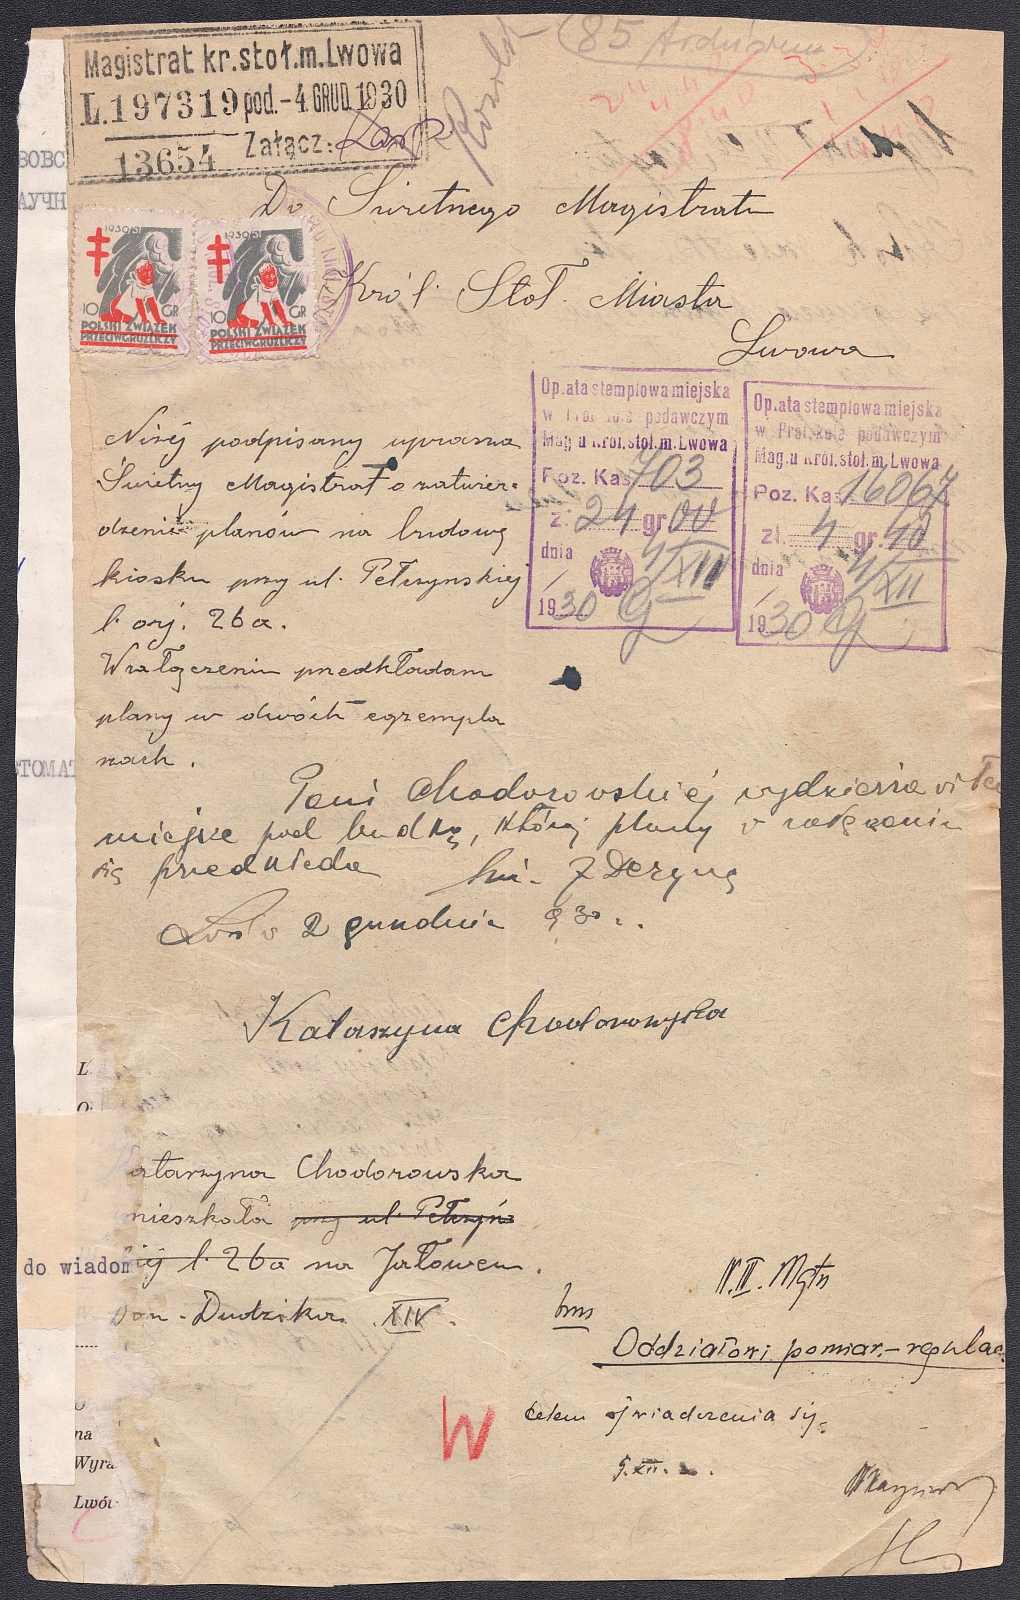 Magistrat kr. stoł. m. Lwowa
L. 197319 pod. -4. GRUD. 1930
13654 Załącz:
85
Do Świetnego Magistratu
Król. Stoł. Miasta
Lwowa
1930/31
10 GR
POLSKI ZWIĄZEK
PRZECIWGRUŹLICZY
1930/31
10 GR
POLSKI ZWIĄZEK
PRZECIWGRUŹLICZY
Opłata stemplowa miejska
w Protokole podawczym
Mag-u król. stoł. m. Lwowa
Poz. Kas 703
zł. 24 gr 00
dnia 4/XII
1930
Opłata stemplowa miejska
w Protokole podawczym
Mag-u król. stoł. m. Lwowa
Poz. Kas 16067
zł. 4 gr. 40
dnia 4/XII
1930
Niżej podpisany uprasza
Świetny Magistrat o zatwier-
dzenie planów na budowę
kiosku przy ul. Pełzynskiej
l. orj. 26a.
W załączeniu przedkładam
plany w dwóch egzempla
rzach.
Pani Chodorowskiej wydzierża
miejsce pod budkę, której plany w załączeniu
się przedkłada
Lwów 2 grudnia 930.
Katarzyna Chodorowska
atarzyna Chodorowska
mieszkała przy ul. Pełzyń
kiej l. 26a na Jałowcu.
Dudzika XIV.
W. II. Mgtu
Oddziałowi pomiar.-regulac.
celem oświadczenia się.
W
do wiadom
ВОВС
АУЧН
СТОМАТ
L.
na
Wyra
Lwów